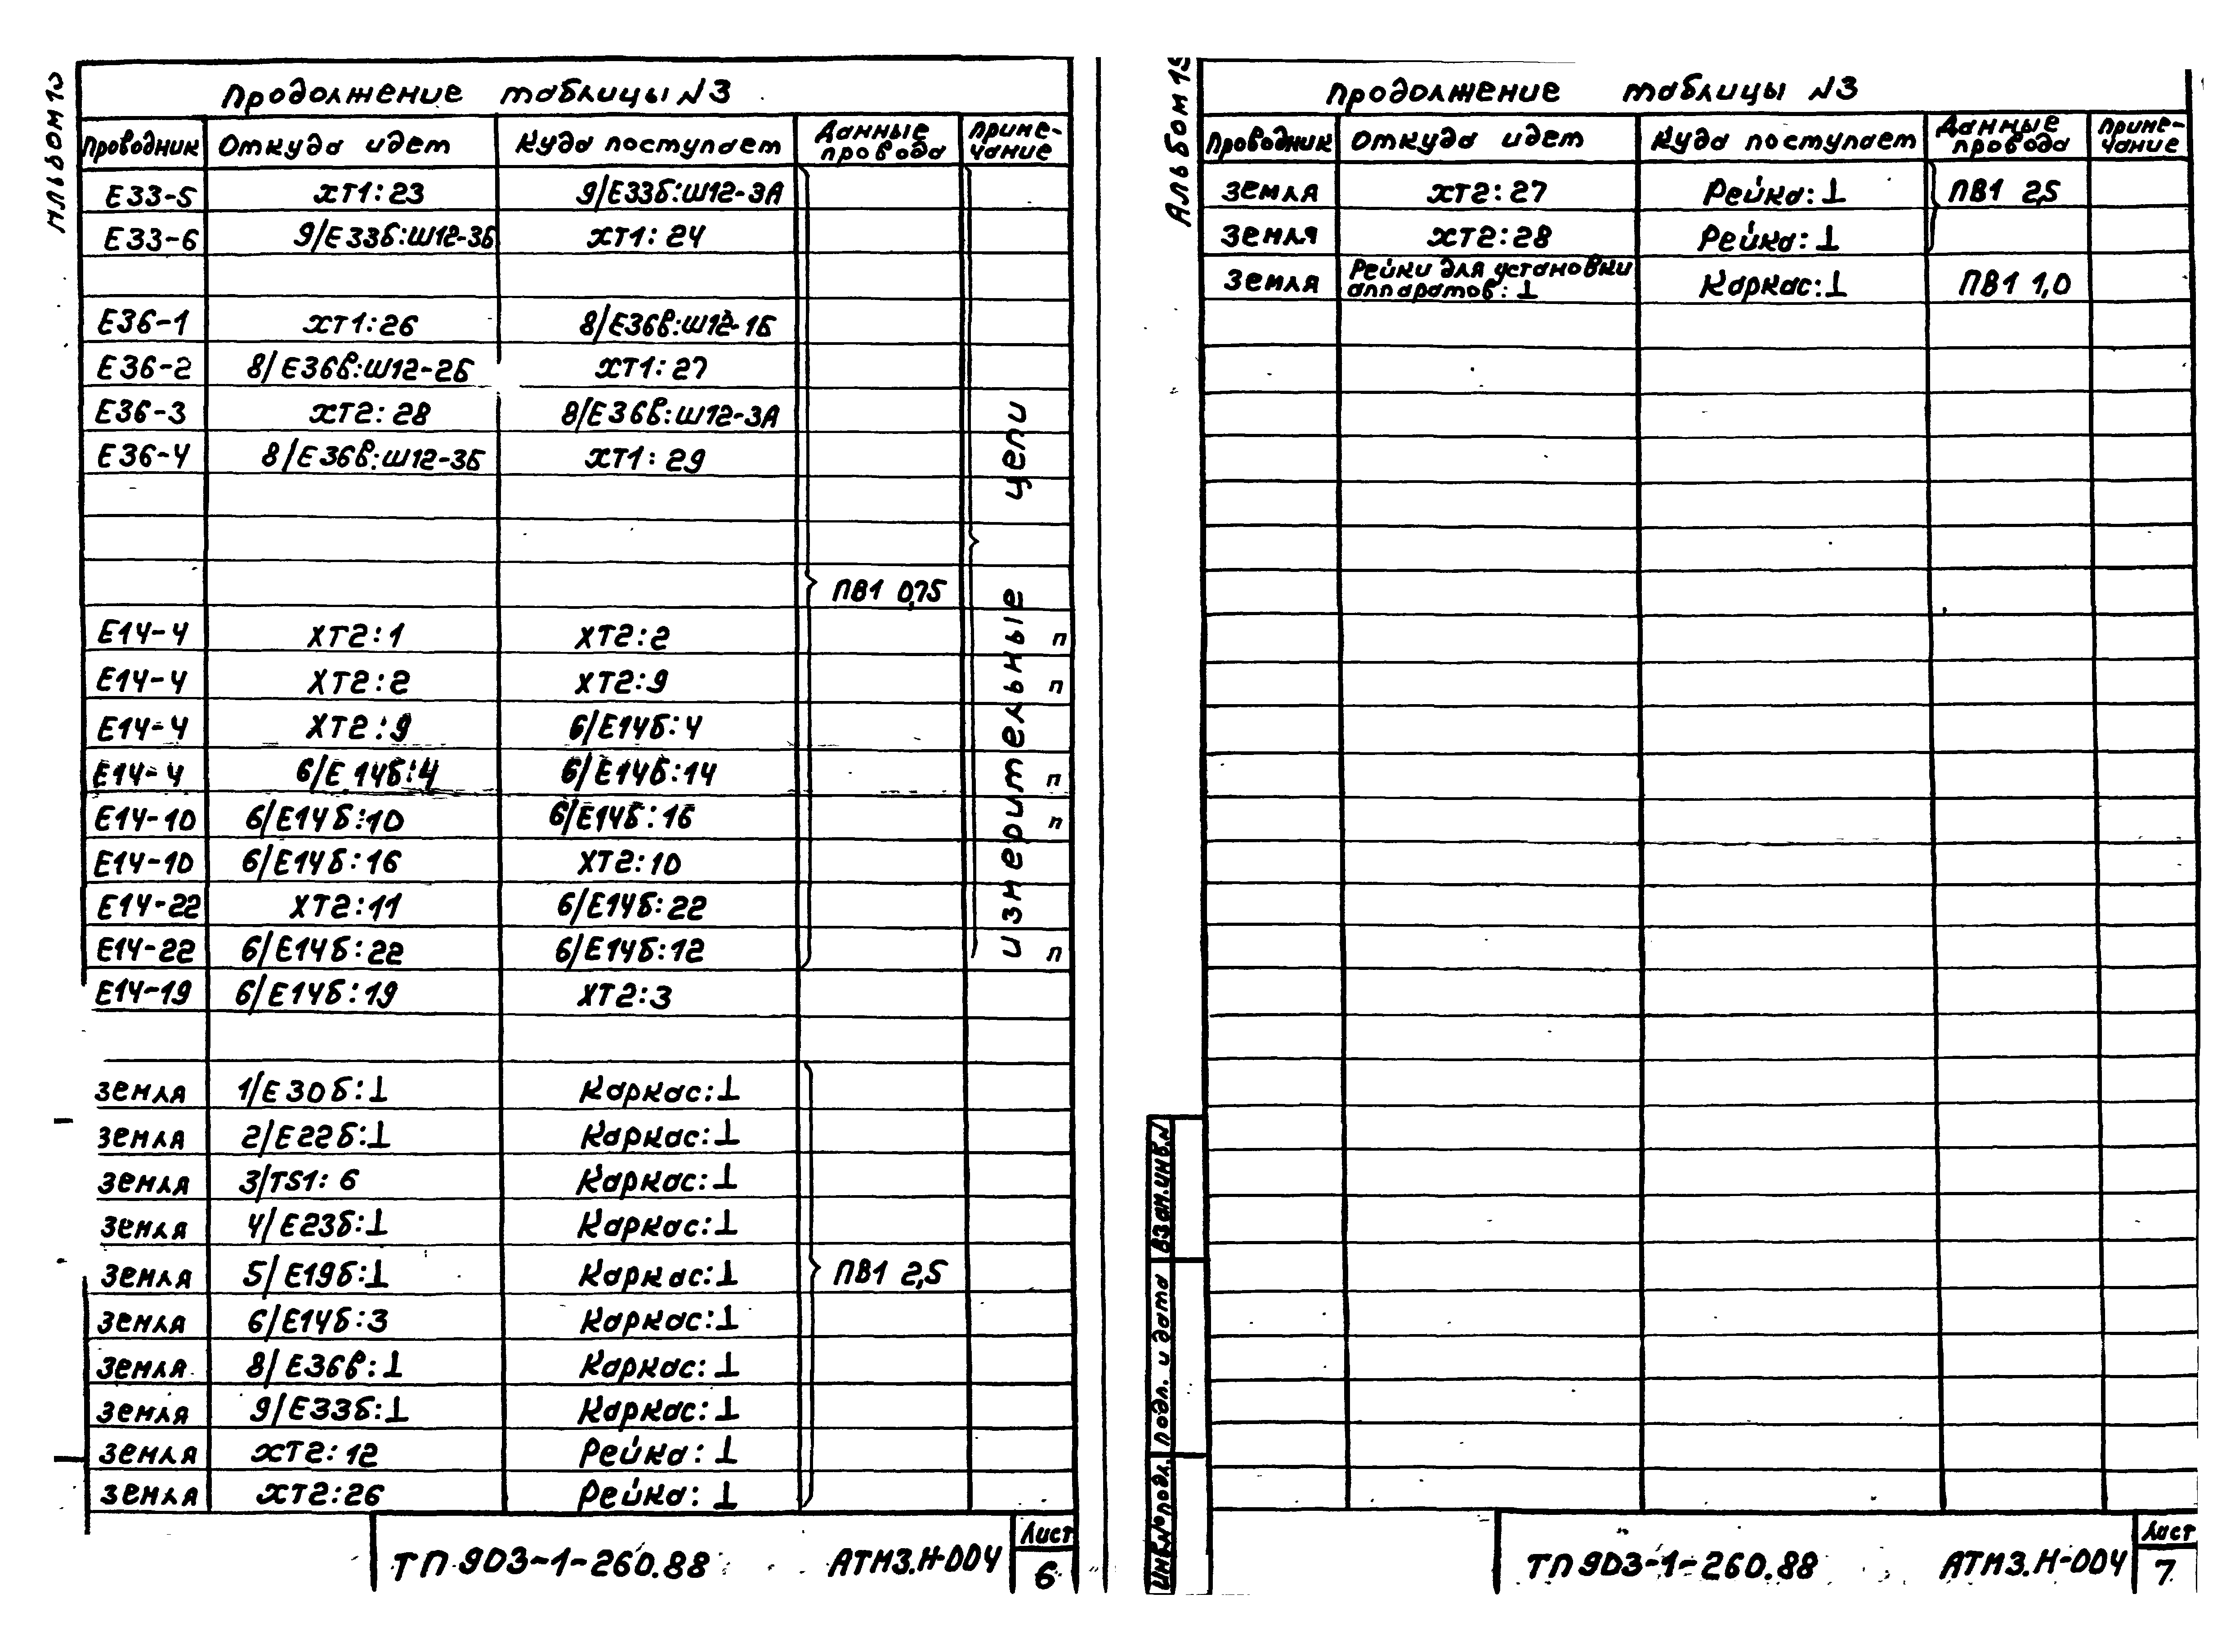 Альбом 13
Продолжение таблицы N3
Проводник Откуда идет Куда поступает Данные провода Примечание
Е33-5 ХТ1:23 9/Е33б:Ш12-3А
Е33-6 9/Е33б:Ш12-3Б ХТ1:24
Е36-1 ХТ1:26 8/Е36в:Ш12-1Б
Е36-2 8/Е36в:Ш12-2Б ХТ1:27
Е36-3 ХТ2:28 8/Е36в:Ш12-3А
Е36-4 8/Е36в:Ш12-3Б ХТ1:29
ПВ1 0,75
измерительные цепи
Е14-4 ХТ2:1 ХТ2:2 п
Е14-4 ХТ2:2 ХТ2:9 п
Е14-4 ХТ2:9 6/Е14б:4
Е14-4 6/Е14б:4 6/Е14б:14 п
Е14-10 6/Е14б:10 6/Е14б:16 п
Е14-10 6/Е14б:16 ХТ2:10
Е14-22 ХТ2:11 6/Е14б:22
Е14-22 6/Е14б:22 6/Е14б:12 п
Е14-19 6/Е14б:19 ХТ2:3
земля 1/Е30б:⊥ Каркас:⊥
земля 2/Е22б:⊥ Каркас:⊥
земля 3/TS1:6 Каркас:⊥
земля 4/Е23б:⊥ Каркас:⊥
земля 5/Е19б:⊥ Каркас:⊥ ПВ1 2,5
земля 6/Е14б:3 Каркас:⊥
земля 8/Е36в:⊥ Каркас:⊥
земля 9/Е33б:⊥ Каркас:⊥
земля ХТ2:12 Рейка:⊥
земля ХТ2:26 Рейка:⊥
ТП 903-1-260.88 АТМ3.Н-004 Лист 6
Альбом 13
Продолжение таблицы N3
Проводник Откуда идет Куда поступает Данные провода Примечание
земля ХТ2:27 Рейка:⊥ ПВ1 2,5
земля ХТ2:28 Рейка:⊥
земля Рейки для установки аппаратов:⊥ Каркас:⊥ ПВ1 1,0
Взам.инв.N
Подл. и дата
Инв.N подл.
ТП 903-1-260.88 АТМ3.Н-004 Лист 7